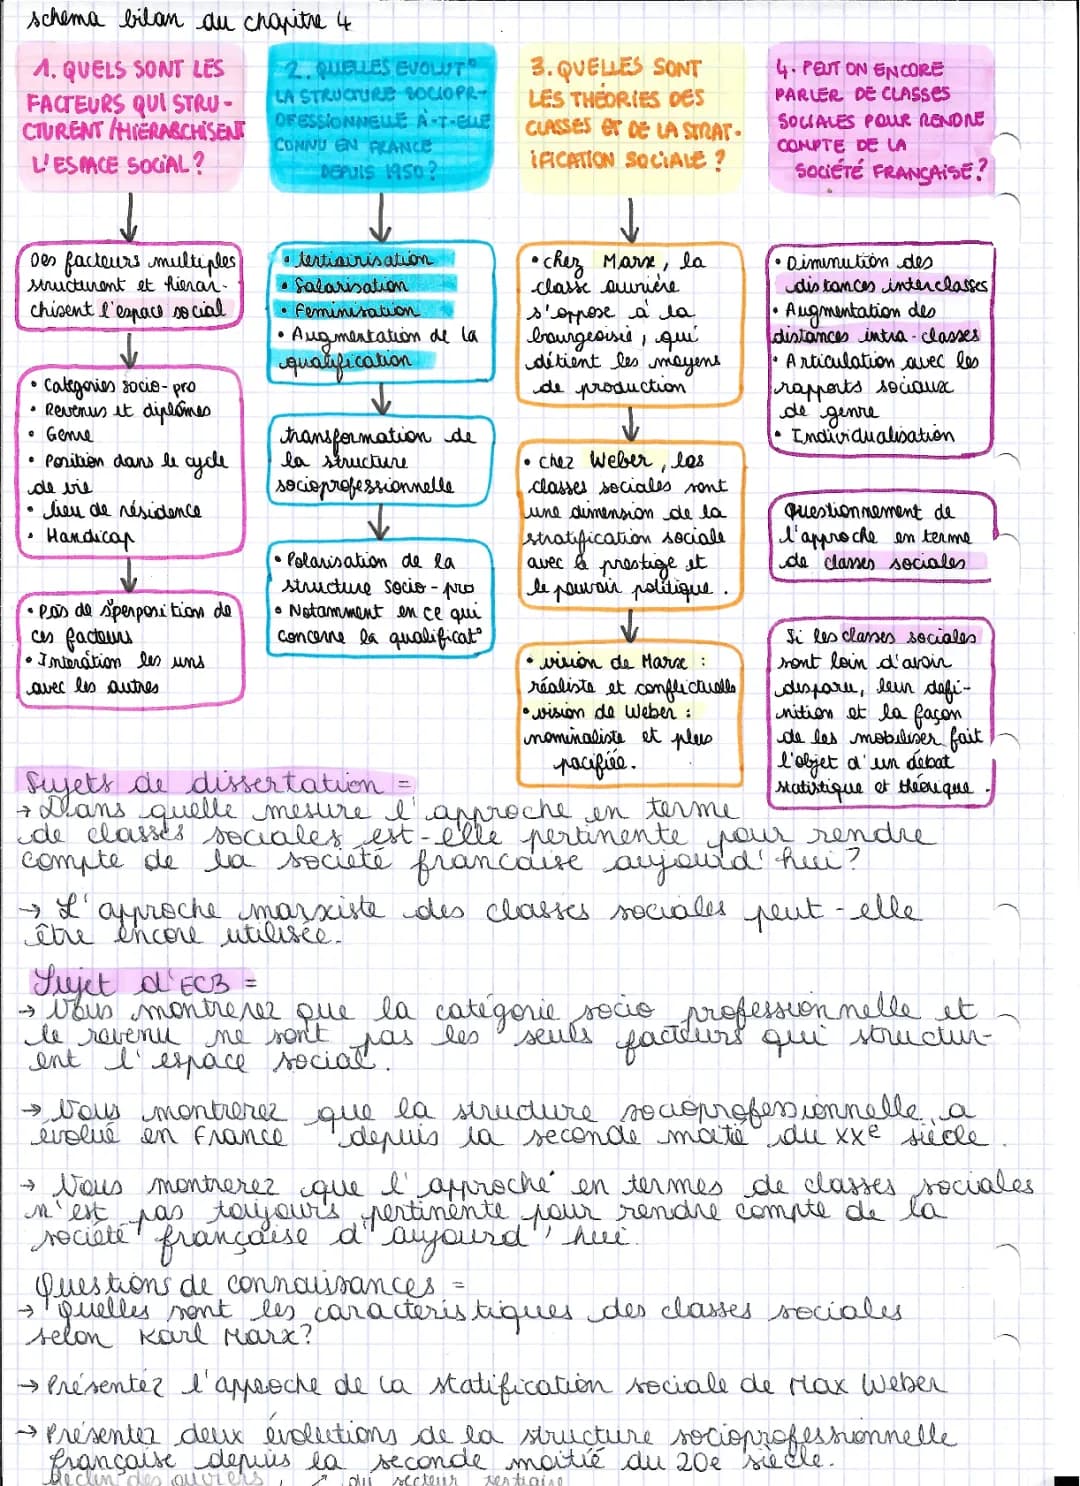 schema bilan du chapitre 4
1. QUELS SONT LES
FACTEURS QUI STRU-
CTURENT /HIERARCHISENT
L'ESPACE SOCIAL ?
Des facteurs multiples
structurent et hierar-
chisent l'espace social
• Catégories socio-pro
• Revenus et diplômes
• Genre
• Position dans le cycle
de vie
• lieu de résidence
• Handicap
• pas de sperposition de
ces facteurs
• Interation les uns
avec les autres
2. QUELLES EVOLUT°
LA STRUCTURE SOCIOPR-
OFESSIONNELLE A-T-ELLE
CONNU EN FRANCE
DEPUIS 1950 ?
• tertiairisation
• Salarisation
• Feminisation
• Augmentation de la
qualification
transformation de
la structure
socioprofessionnelle
• Polarisation de la
structure socio-pro
• Notamment en ce qui
concerne la qualificat°
3. QUELLES SONT
LES THÉORIES DES
CLASSES ET DE LA STRAT-
IFICATION SOCIALE ?
• chez Marx, la
classe ouvrière
s'oppose à la
bourgeoisie, qui
détient les moyens
de production
• chez Weber, les
classes sociales sont
une dimension de la
stratification sociale
avec le prestige et
le pouvoir politique.
• vision de Marx :
réaliste et conflictuelle
• vision de Weber :
nominaliste et plus
pacifiée.
4. PEUT ON ENCORE
PARLER DE CLASSES
SOCIALES POUR RENDRE
COMPTE DE LA
SOCIÉTÉ FRANÇAISE ?
• Diminution des
distances interclasses
• Augmentation des
distances intra-classes
• Articulation avec les
rapports sociaux
de genre
• Individualisation
Questionnement de
l'approche en terme
de classes sociales
Si les classes sociales
sont loin d'avoir
disparu, leur défi-
nition et la façon
de les mobiliser fait
l'objet d'un débat
statistique et théorique.
Sujets de dissertation =
→ Dans quelle mesure l'approche en terme
de classes sociales est-elle pertinente pour rendre
compte de la societé francaise aujourd'hui ?
→ L'approche marxiste des classes sociales peut-elle
être encore utilisée.
Sujet d'EC3 =
→ Vous montrerez que la catégorie socio professionnelle et
le revenu ne sont pas les seuls facteurs qui structur-
ent l'espace social.
→ Vous montrerez que la structure socioprofessionnelle a
évolué en France depuis la seconde moité du XXe siècle.
→ Vous montrerez que l'approche en termes de classes sociales
n'est pas toujours pertinente pour rendre compte de la
société française d'aujourd'hui.
Questions de connaissances =
→ Quelles sont les caractéristiques des classes sociales
selon Karl Marx ?
→ Présentez l'approche de la statification sociale de Max Weber
→ Présentez deux évolutions de la structure socioprofessionnelle
française depuis la seconde moitié du 20e siècle.
déclin des ouvriers, ↗ du secteur tertiaire